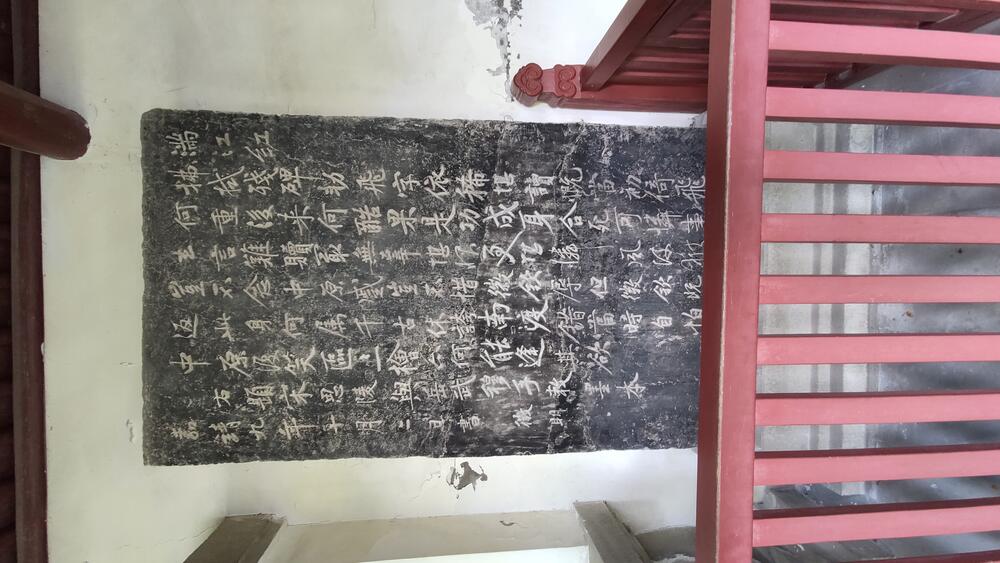 滿江紅
拂拭殘碑勑飛字依稀堪讀慨當初倚飛
何重後来何酷果是功成身合死可憐事
去言難贖最無辜堪恨更堪憐風波獄
豈不念中原蹙豈不惜徽欽辱但徽欽既
返此身何属千古休誇南渡錯當時自怕
中原復笑區〻一檜亦何能逢其欲
右題宋思陵與岳武穆手敕墨本
嘉靖九年十月二日書 徵明